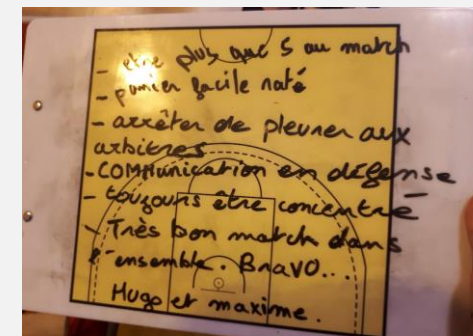 - être plus que 5 au match
- panier facile raté
- arrêter de pleurer aux
arbitres
- COMMunication en défense
- toujours être concentré
- Très bon match dans
l'ensemble. BRAVO...
Hugo et maxime.